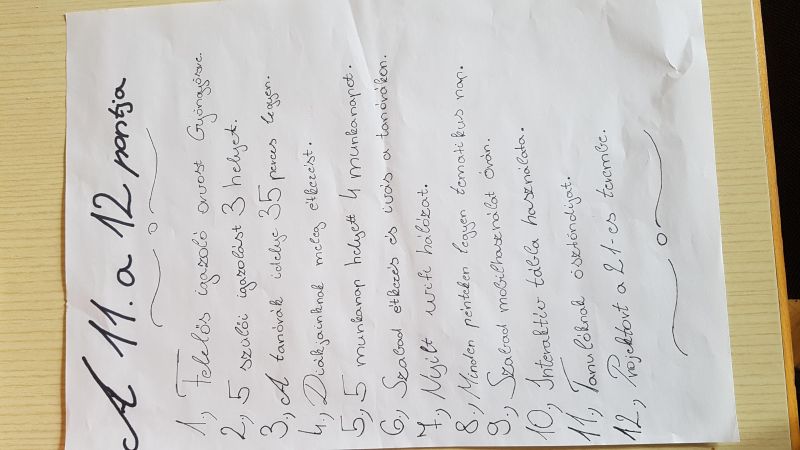 A 11.a 12 pontja
1., Felelős igazoló orvost Gyöngyösre.
2., 5 szülői igazolást 3 helyett.
3., A tanórák ideje 35 perces legyen.
4., Diákjainknak meleg étkezést.
5., 5 munkanap helyett 4 munkanapot.
6., Szabad étkezés és ivás a tanórákon.
7., Nyílt wifi hálózat.
8., Minden pénteken legyen tematikus nap.
9., Szabad mobilhasználat órán.
10., Interaktív tábla használata.
11., Tanulóknak ösztöndíjat.
12., Projektort a 21-es terembe.